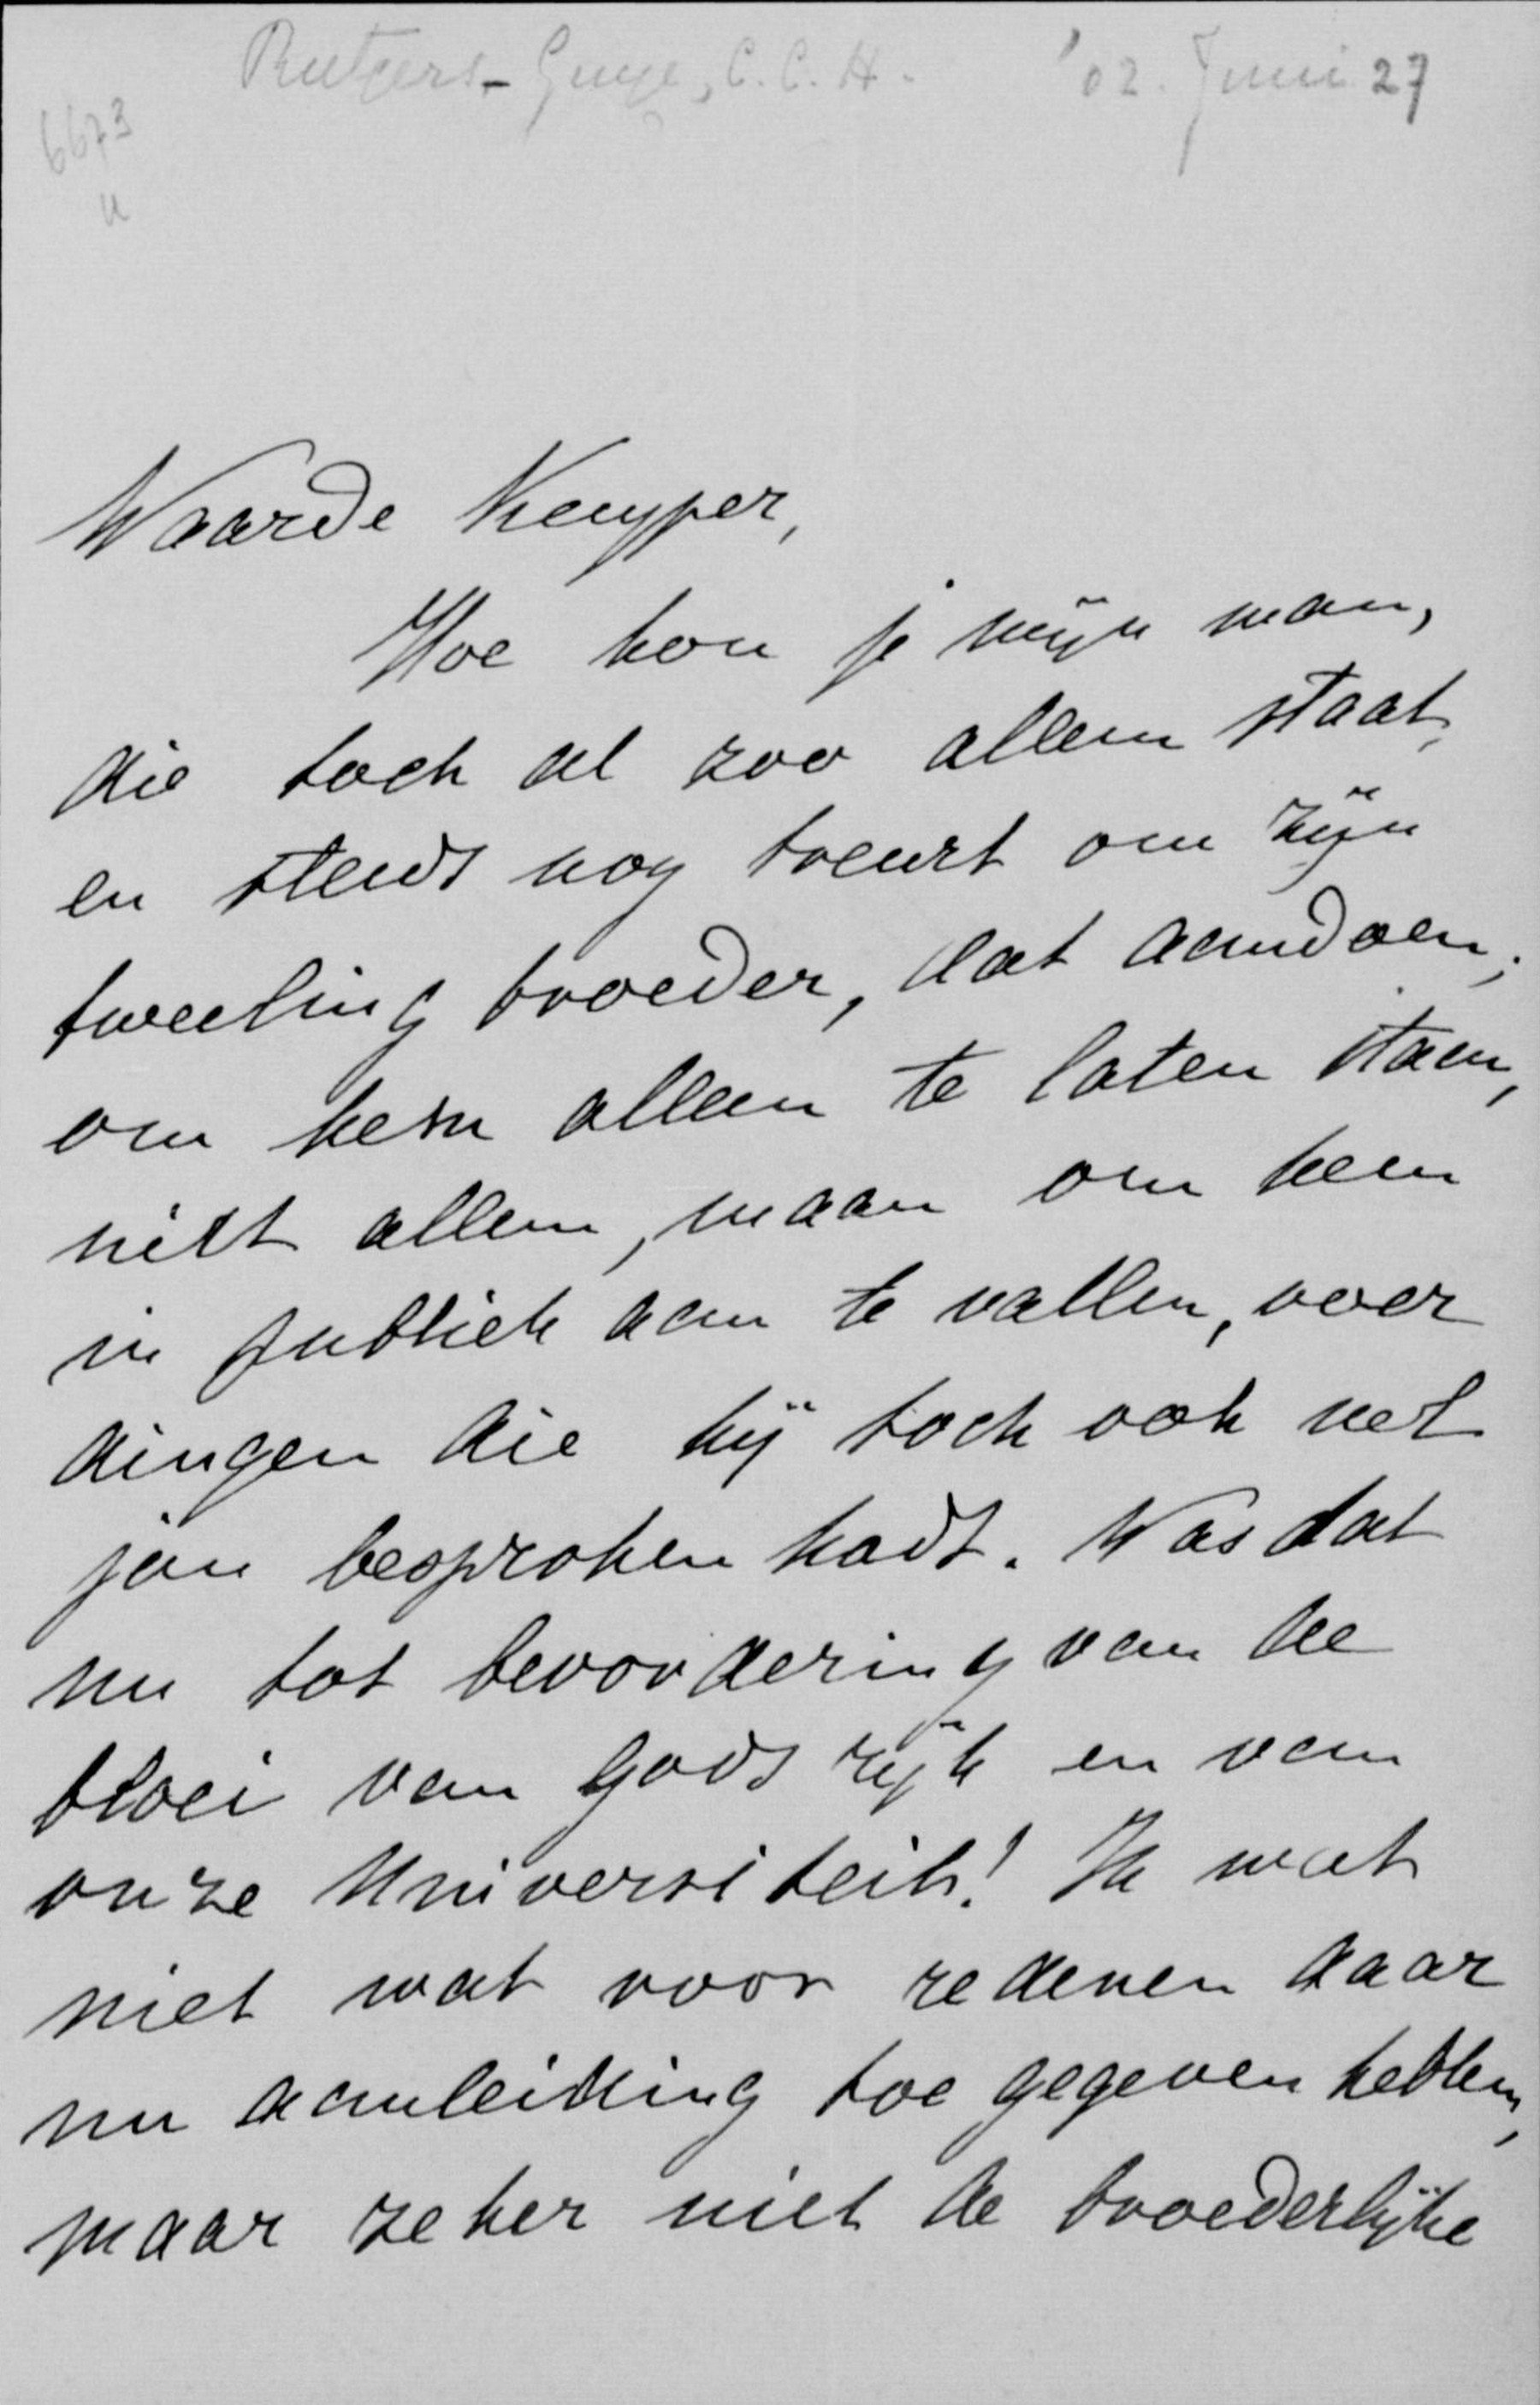 Rutgers-Guye, C.C.H. '02. Juni 27
6673
Waarde Kuyper,
Hoe kon je mijn man,
die toch al zoo alleen staat,
en steeds nog treurt om zijn
tweeling broeder, dat aandoen;
om hem alleen te laten staan,
niet alleen, maar om hem
in publiek aan te vallen, over
dingen die hij toch ook met
jou besproken hadt. Was dat
nu tot bevoordering van de
bloei van Gods rijk en van
onze Universiteit! Ik weet
niet wat voor redenen daar
nu aanleiding toe gegeven hebben,
maar zeker niet de broederlijke